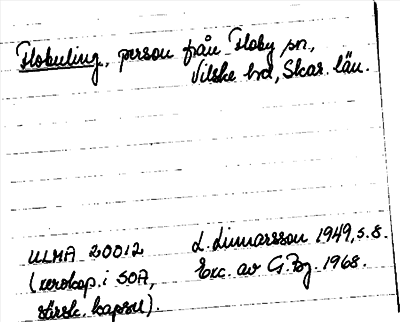 Flobuling, person från Floby sn,
Vilske hd, Skar. län.
ULMA 20012
(xerokop. i SOA,
särsk. kapsel).
L. Linnarsson 1949, s. 8.
Exc. av G. Bg. 1968.